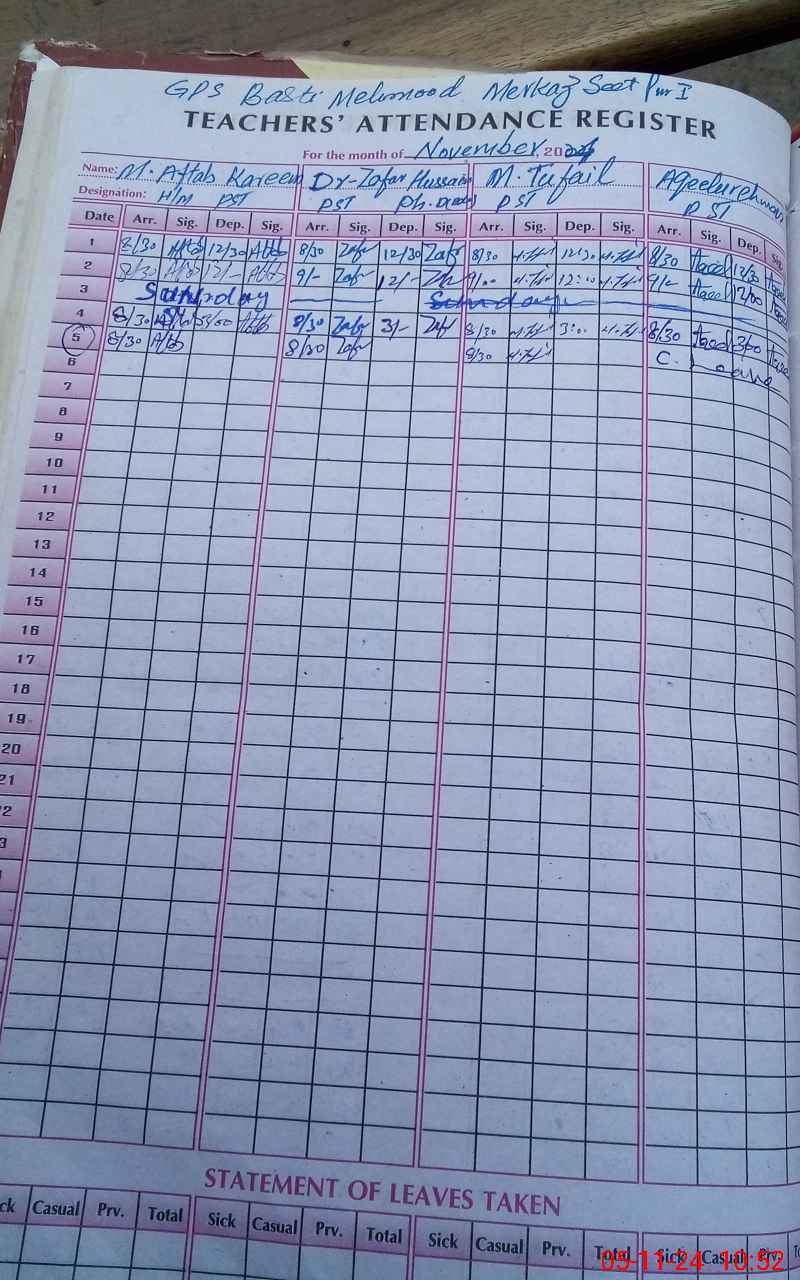 GPS Basti Mehmood Merkaz Seet Pur I
TEACHERS' ATTENDANCE REGISTER
For the month of November, 2024
Name: M. Aftab Kareem Dr. Zafar Hussain M. Tufail Aqeelurehman
Designation: H/M PST PST Ph. D PST PST
Date Arr. Sig. Dep. Sig. Arr. Sig. Dep. Sig. Arr. Sig. Dep. Sig. Arr. Sig. Dep. Sig.
1 8/30 Aftb 12/30 Aftb 8/30 Zafr 12/30 Zafr 8/30 12:30 8/30 Aqeel 12/30
2 8/30 Aftb 12/- Aftb 9/- Zafr 12/- Zafr 9/00 12:00 9/- Aqeel 12/00
3 Sunday Sunday
4 8/30 3/00 Aftb 8/30 Zafr 3/- Zafr 8/30 3:00 8/30 Aqeel 3/00
5 8/30 Aftb 8/30 Zafr 8/30 C. Leave
6
7
8
9
10
11
12
13
14
15
16
17
18
19
20
21
2
3
STATEMENT OF LEAVES TAKEN
ck Casual Prv. Total Sick Casual Prv. Total Sick Casual Prv. Total Sick Casual Prv.
05-11-24 10:52